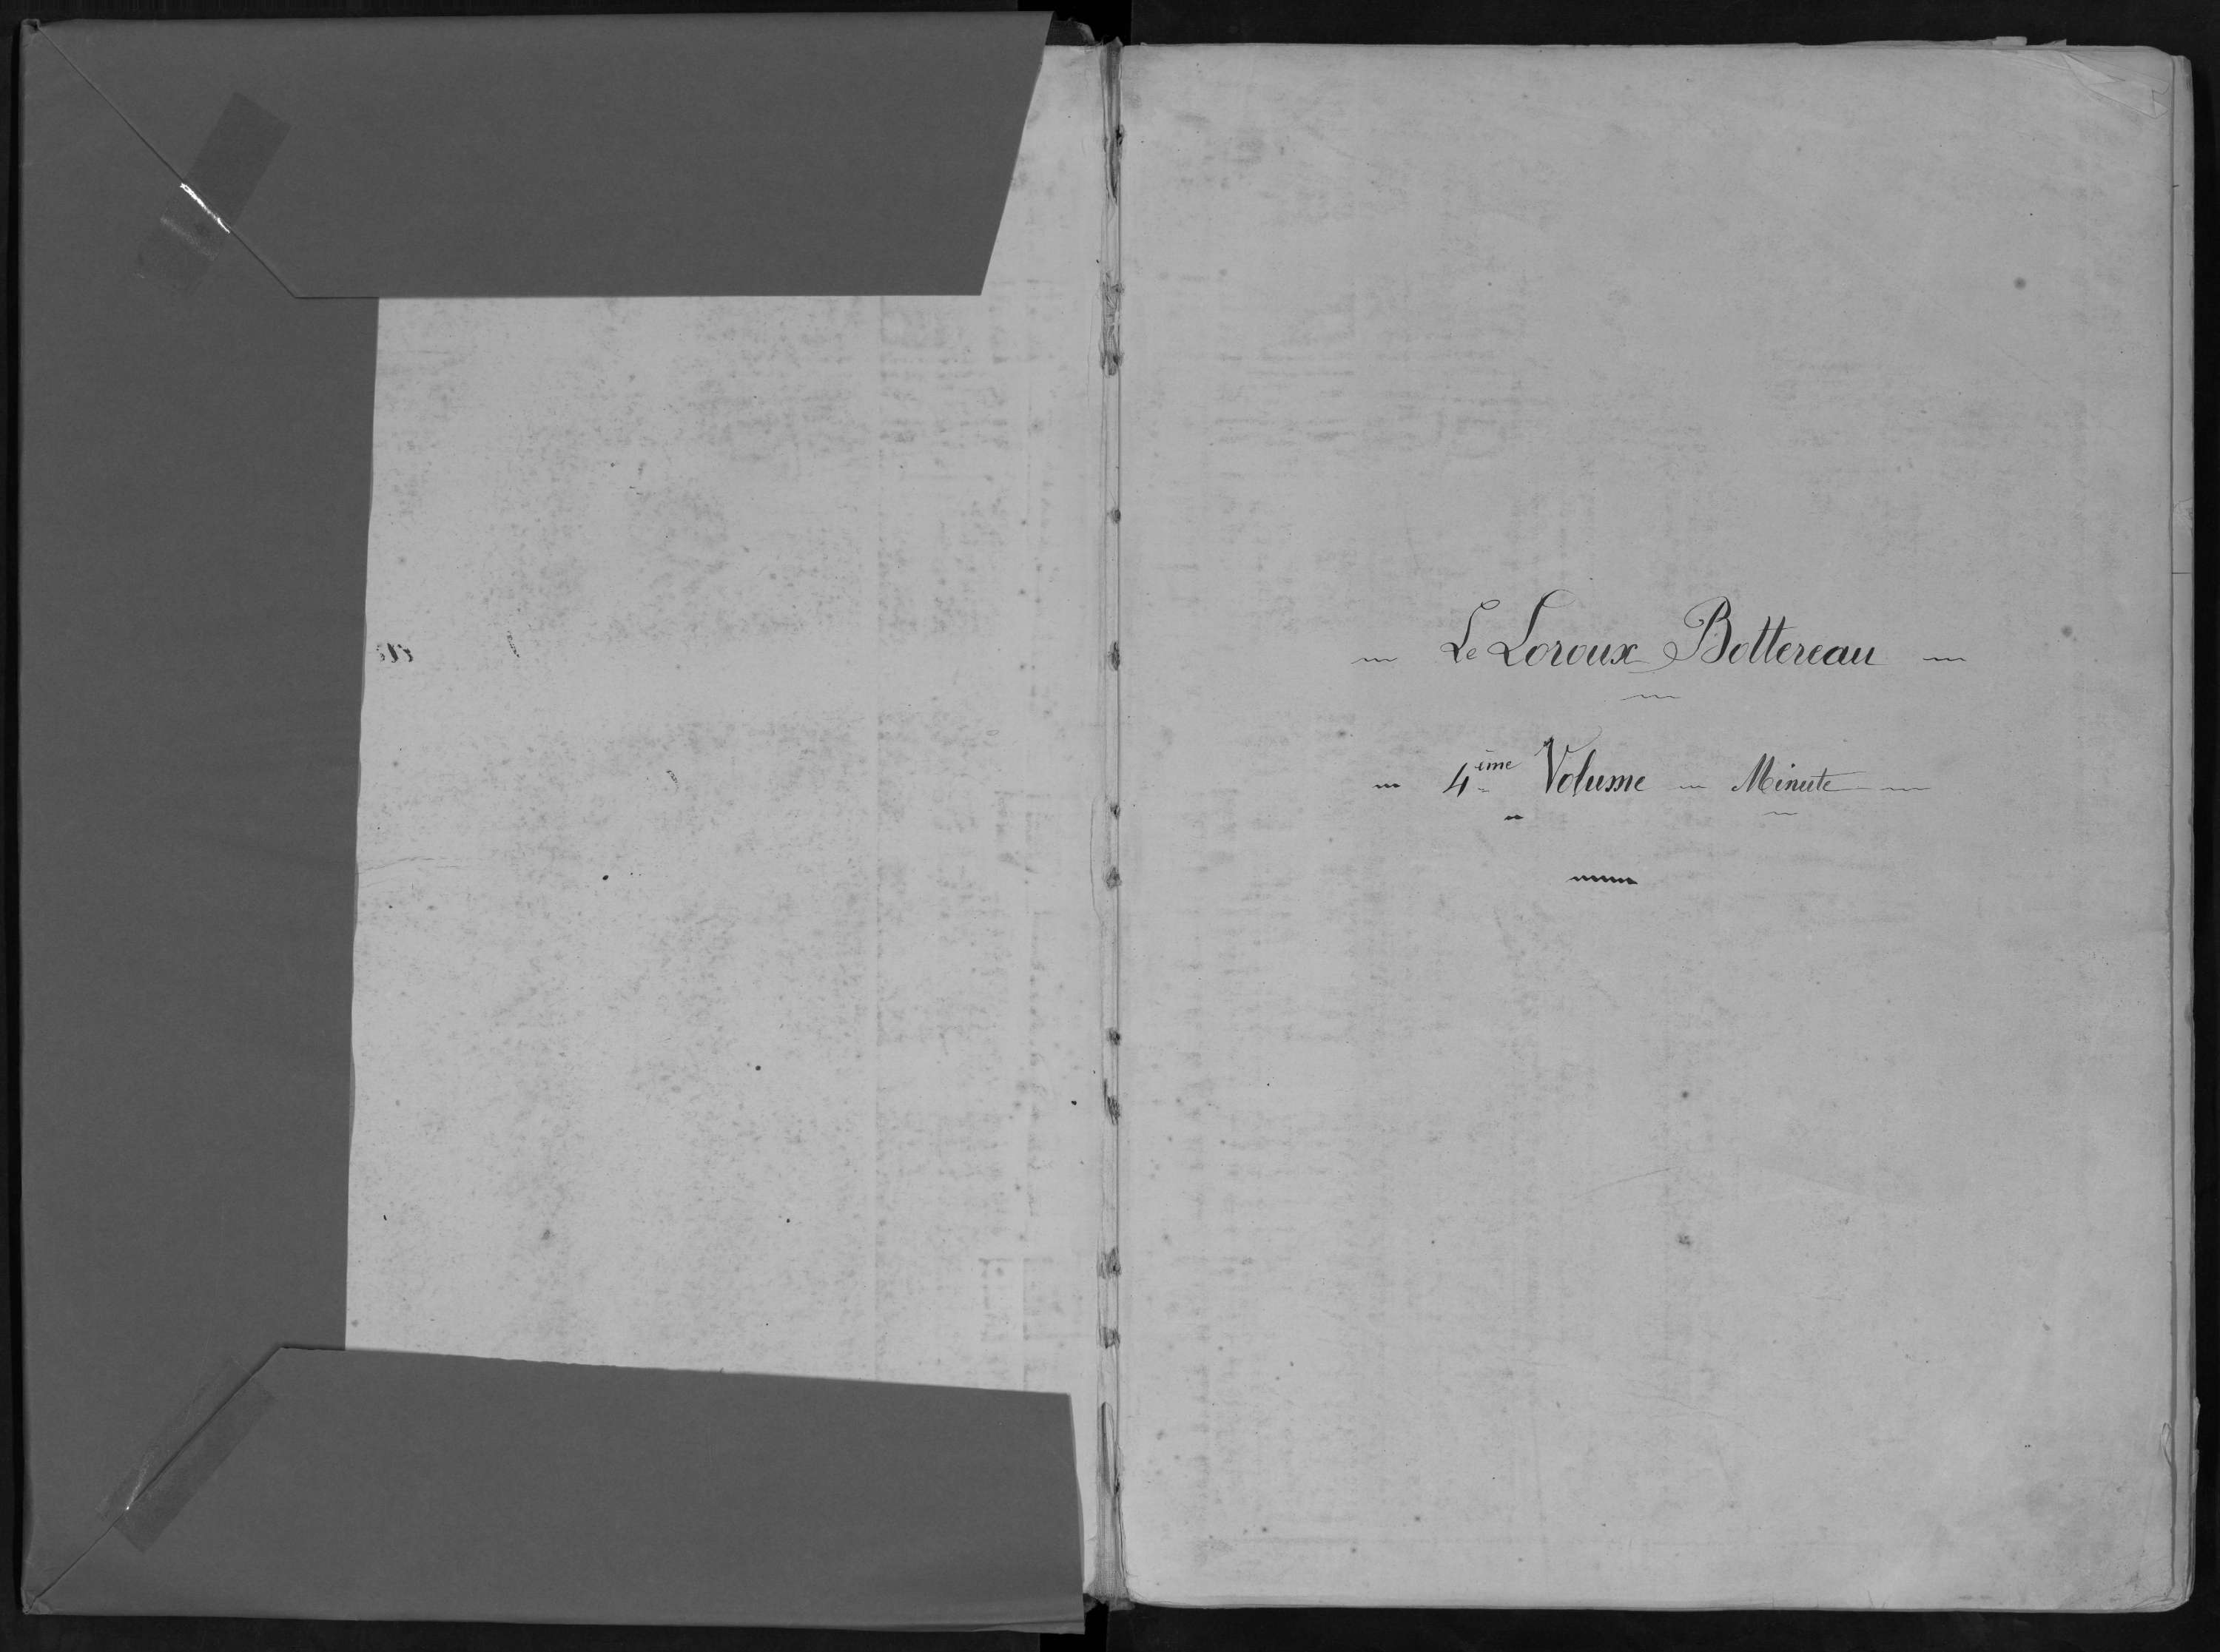 Le Loroux Bottereau
4ème Volume — Minute